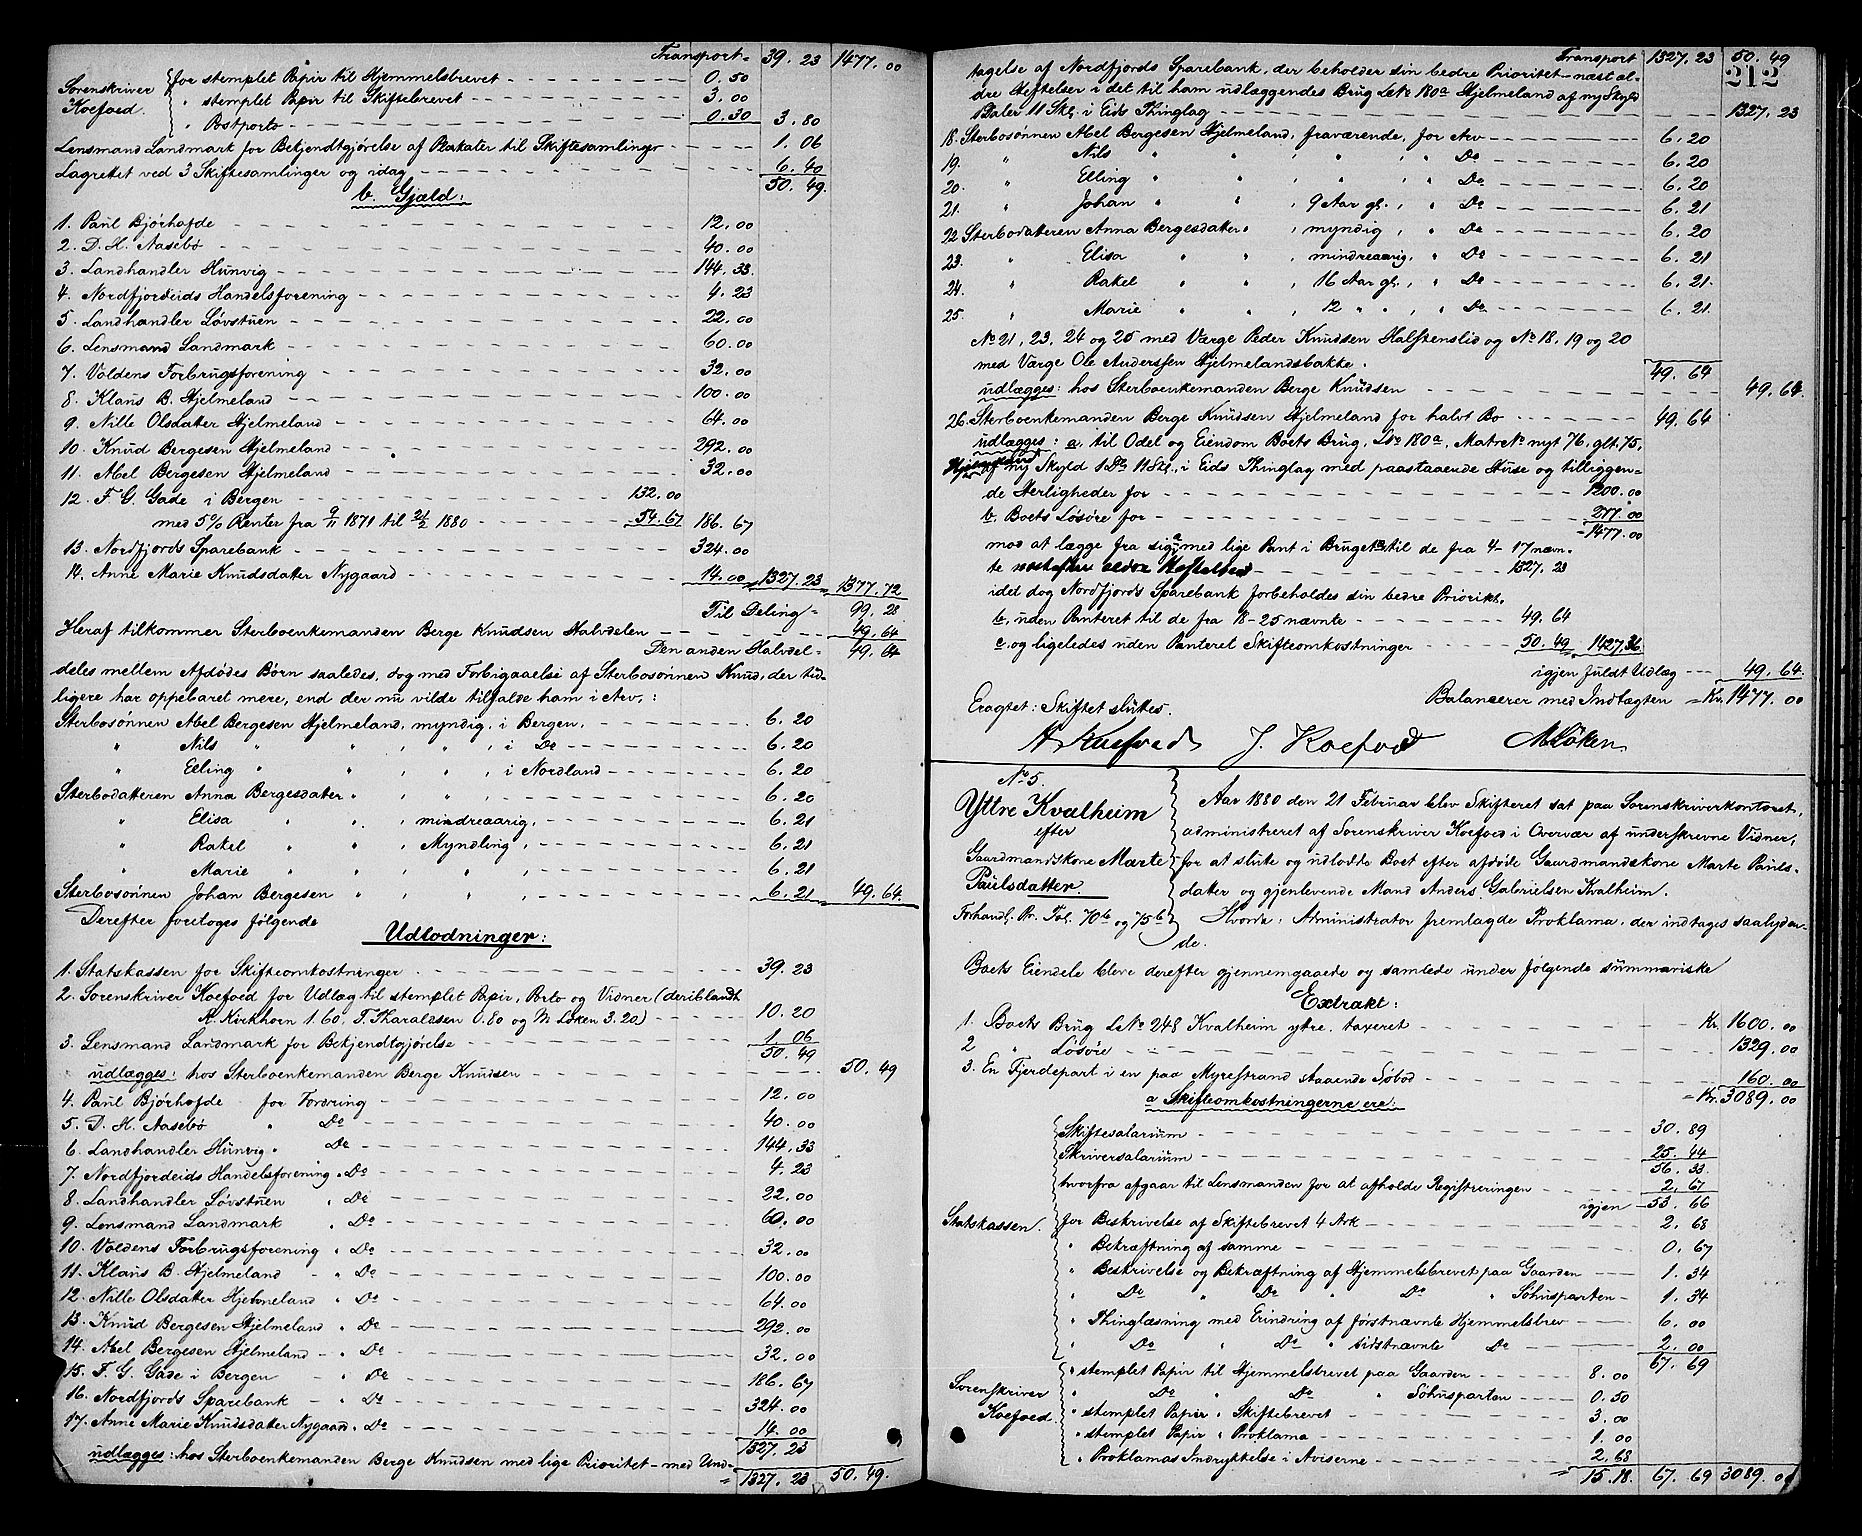 Transport = 39. 23 1477. 00
Sorenskriver for stemplet Papir til Hjemmelsbrevet - 0. 50
Koefoed. " stemplet Papir til Skiftebrevet - 3. 00
" Postporto - 0. 30 3. 80
Lensmand Landmark for Bekjendtgjørelse af Plakater til Skiftesamlinger - 1. 06
Lagrettet ved 3 Skiftesamlinger og idag - 6. 40
50. 49.
b. Gjæld:
1. Paul Bjørhofde - 12. 00
2. D. H. Aasebö - 40. 00
3. Landhandler Hunvig - 144. 33
4. Nordfjordeids Handelsforening - 4. 23
5. Landhandler Løvstuen - 22. 00
6. Lensmand Landmark - 60. 00
7. Voldens Forbrugsforening - 32. 00
8. Klaus B. Hjelmeland - 100. 00
9. Nille Olsdatter Hjelmeland - 64. 00
10. Knud Bergesen Hjelmeland - 292. 00
11. Abel Bergesen Hjelmeland - 32. 00
12. F. G. Gade i Bergen - 132. 00
med 5% Renter fra 9/11 1871 til 21/2 1880 - 54. 67 186. 67
13. Nordfjords Sparebank - 324. 00
14. Anne Marie Knudsdatter Nygaard - 14. 00 1327. 23 1377. 72
Til Deling = 99. 28
Heraf tilkommer Sterboenkemanden Berge Knudsen Halvdelen - 49. 64
Den anden Halvdel = 49. 64
deles mellem Afdødes Børn saaledes, dog med Forbigaaelse af Sterbosønnen Knud, der tid-
ligere har oppebaret mere, end der nu vilde tilfalde ham i Arv,:
Sterbosønnen Abel Bergesen Hjelmeland, myndig, i Bergen, 6. 20
" Nils " " , " , i Do - 6. 20
" Elling " " , " , i Nordland - 6. 20
Sterbodatteren Anna Bergesdatter " , " , - 6. 20
" Elisa " " , mindreaarig, - 6. 21
" Rakel " " , Myndling, - 6. 21
" Marie " " , " , - 6. 21
Sterbosønnen Johan Bergesen " , " , - 6. 21 49. 64.
Derefter foretoges følgende
Udlodninger:
1. Statskassen for Skifteomkostninger - 39. 23
2. Sorenskriver Koefoed for Udlæg til stemplet Papir, Porto og Vidner (deriblandt
A. Kirkhorn 1.60, T. Tharaldsen 0.80 og M Løken 3.20) - 10. 20
3. Lensmand Landmark for Bekjendtgjørelse - 1. 06
50. 49
udlægges: hos Sterboenkemanden Berge Knudsen - 50. 49
4. Paul Bjørhofde for Fordring - 12. 00
5. D. H. Aasebø " Do - 40. 00
6. Landhandler Hunvig " Do - 144. 33
7. Nordfjordeids Handelsforening " Do - 4. 23
8. Landhandler Løvstuen " Do - 22. 00
9. Lensmand Landmark " Do - 60. 00
10. Voldens Forbrugsforening " Do - 32. 00
11. Klaus B. Hjelmeland - " Do - 100. 00
12. Nille Olsdatter Hjelmeland " Do - 64. 00
13. Knud Bergesen Hjelmeland " Do - 292. 00
14. Abel Bergesen Hjelmeland - " Do - 32. 00
15. F. G. Gade i Bergen - " Do - 186. 67
16. Nordfjords Sparebank - " Do - 324. 00
17. Anne Marie Knudsdatter Nygaard " Do - 14. 00
1327. 23
udlægges: hos Sterboenkemanden Berge Knudsen med lige Prioritet - med Und-
= 1327. 23 50. 49.
Transport 1327. 23 50. 49
212
tagelse af Nordfjords Sparebank, der beholder sin bedre Prioritet - næst æl-
dre Heftelser i det til ham udlæggendes Brug LNo 180a Hjelmeland af ny Skyld
1 Daler 11 Sk, i Eids Thinglag - 1327. 23
18. Sterbosønnen Abel Bergesen Hjelmeland, fraværende, for Arv - 6. 20
19. " Nils " " , " , " Do - 6. 20
20. " Elling " " , " , " Do - 6. 20
21. " Johan " " , 9 Aar gl. , " Do - 6. 21
22. Sterbodatteren Anna Bergesdatter " , myndig , " Do - 6. 20
23. " Elisa " " , mindreaarig, " Do - 6. 21
24. " Rakel " " , 16 Aar gl., " Do - 6. 21.
25. " Marie " " , 12 " " , " Do - 6. 21.
No 21, 23, 24 og 25 med Værge Peder Knudsen Halstenslid og No 18, 19 og 20
med Værge Ole Anderssen Hjelmelandsbakke. 49. 64
udlægges: hos Sterboenkemanden Berge Knudsen - 49. 64.
26. Sterboenkemanden Berge Knudsen Hjelmeland for halvt Bo - 49. 64
udlægges: a. til Odel og Eiendom Boets Brug, LNo 180a, Matr No nyt 76, glt. 75,
Hjelmeland af ny Skyld 1 Dr 11 Sk., i Eids Thinglag med paastaaende Huse og tilliggen-
de Herligheder for - 1200. 00
b. Boets Løsøre for - 277. 00
= 1477. 00
mod at lægge fra sig, a. med lige Pant i Bruget til de fra 4 - 17 nævn-
te næstefter ældre Heftelser - 1327. 23
idet dog Nordfjords Sparebank forbeholdes sin bedre Prioritet.
b. uden Panteret til de fra 18 - 25 nævnte - 49. 64
c. og ligeledes uden Panteret Skifteomkostninger - 50. 49 1427. 36
igjen fuldt Udlæg - 49. 64.
Balancerer med Indtægten = Kr. 1477. 00
Eragtet: Skiftet slutes.
A Koefoed J. Koefoed M Løken
No 5.
Yttre Kvalheim
efter
Gaardmandskone Marte
Paulsdatter.
Forhandl. Pr. Fol. 70b og 75b
Aar 1880 den 21 Februar blev Skifteret sat paa Sorenskriverkontoret,
administreret af Sorenskriver Koefoed i Overvær af underskrevne Vidner,
for at slute og udlodde Boet efter afdøde Gaardmandskone Marte Pauls-
datter og gjenlevende Mand Anders Gabrielsen Kvalheim.
Hvorda: Administrator fremlagde Proklama, der indtages saalyden-
de.
Boets Eiendele bleve derefter gjennemgaaede og samlede under følgende summariske
Extrakt:
1. Boets Brug LNo 248 Kvalheim ytre, taxeret - Kr. 1600. 00
2 " Løsøre - 1329. 00
3. En Fjerdepart i en paa Myrestrand staaende Søbod - 160. 00
= Kr. 3089. 00
a Skifteomkostningerne ere:
Skiftesalarium - 30. 89
Skriversalarium - 25. 44
56. 33.
hvorfra afgaar til Lensmanden for at afholde Registreringen - 2. 67
igjen - 53. 66
Statskassen. for Beskrivelse af Skiftebrevet 4 Ark - 2. 68
" Bekræftning af samme - 0. 67
" Beskrivelse og Bekræftning af Hjemmelsbrevet paa Gaarden - 1. 34
" Do " Do " Do " Søhusparten - 1. 34
" Thinglæsning med Erindring af førstnævnte Hjemmelsbrev - 6. 00
" Do " Do " sidstnævnte Do - 2. 00
67. 69
Sorenskriver
Koefoed.
" stemplet Papir til Hjemmelsbrevet paa Gaarden - 8. 00
" Do " Do " Søhusparten - 0. 50
" stemplet Papir " Skiftebrevet - 3. 00
" stemplet Papir " Proklama - 1. 00
" Proklamas Indrykkelse i Aviserne - 2. 68
= 15. 18. 67. 69 3089. 00